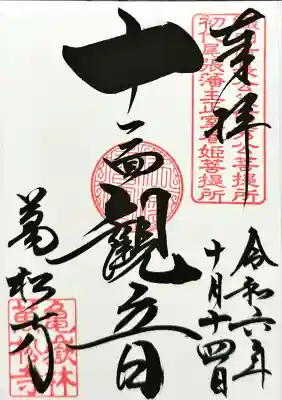 奉拝
令和六年
十月十四日
初代尾張藩主正室春姫菩提所
十一面観音
萬松寺
亀嶽林
萬松寺